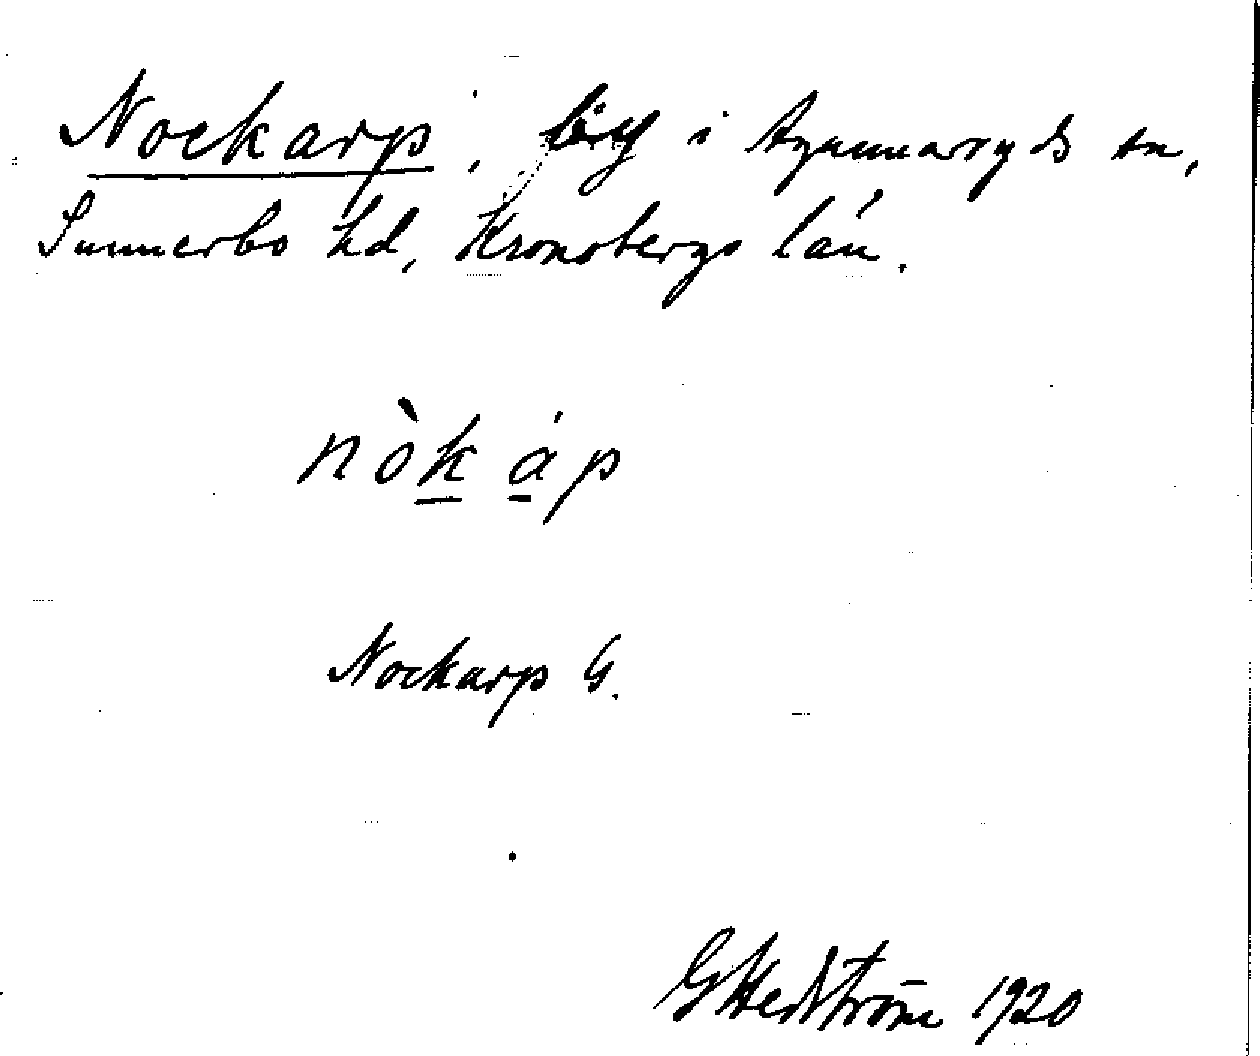 Nockarp, by i Agunnaryds sn,
Sunnerbo hd, Kronobergs län.
nòk áp
Nockarp G.
G Hedström 1920